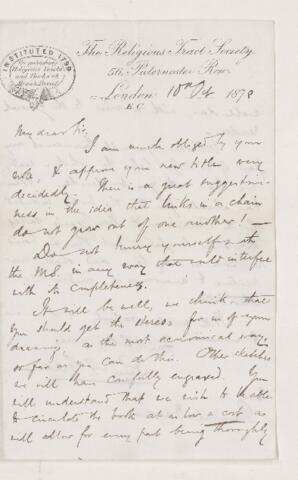 INSTITUTED 1799
The Religious Tract Society,
56, Paternoster Row,
London 10th 1878
E.C.
My dear Sir,
I am much obliged by your
note, & approve your new title very
decidedly. There is a great suggestive-
ness in the idea that links in a chain
do not grow out of one another! —
Do not hurry yourself with
the MS. in any way that would interfere
with its completeness.
It will be well, we think, that
you should get the stereos for us of your
drawings, in the most economical way,
so far as you can do this. Other sketches
we will have carefully engraved. You
will understand that we wish to be able
to circulate the book at as low a cost as
will allow for every part being thoroughly